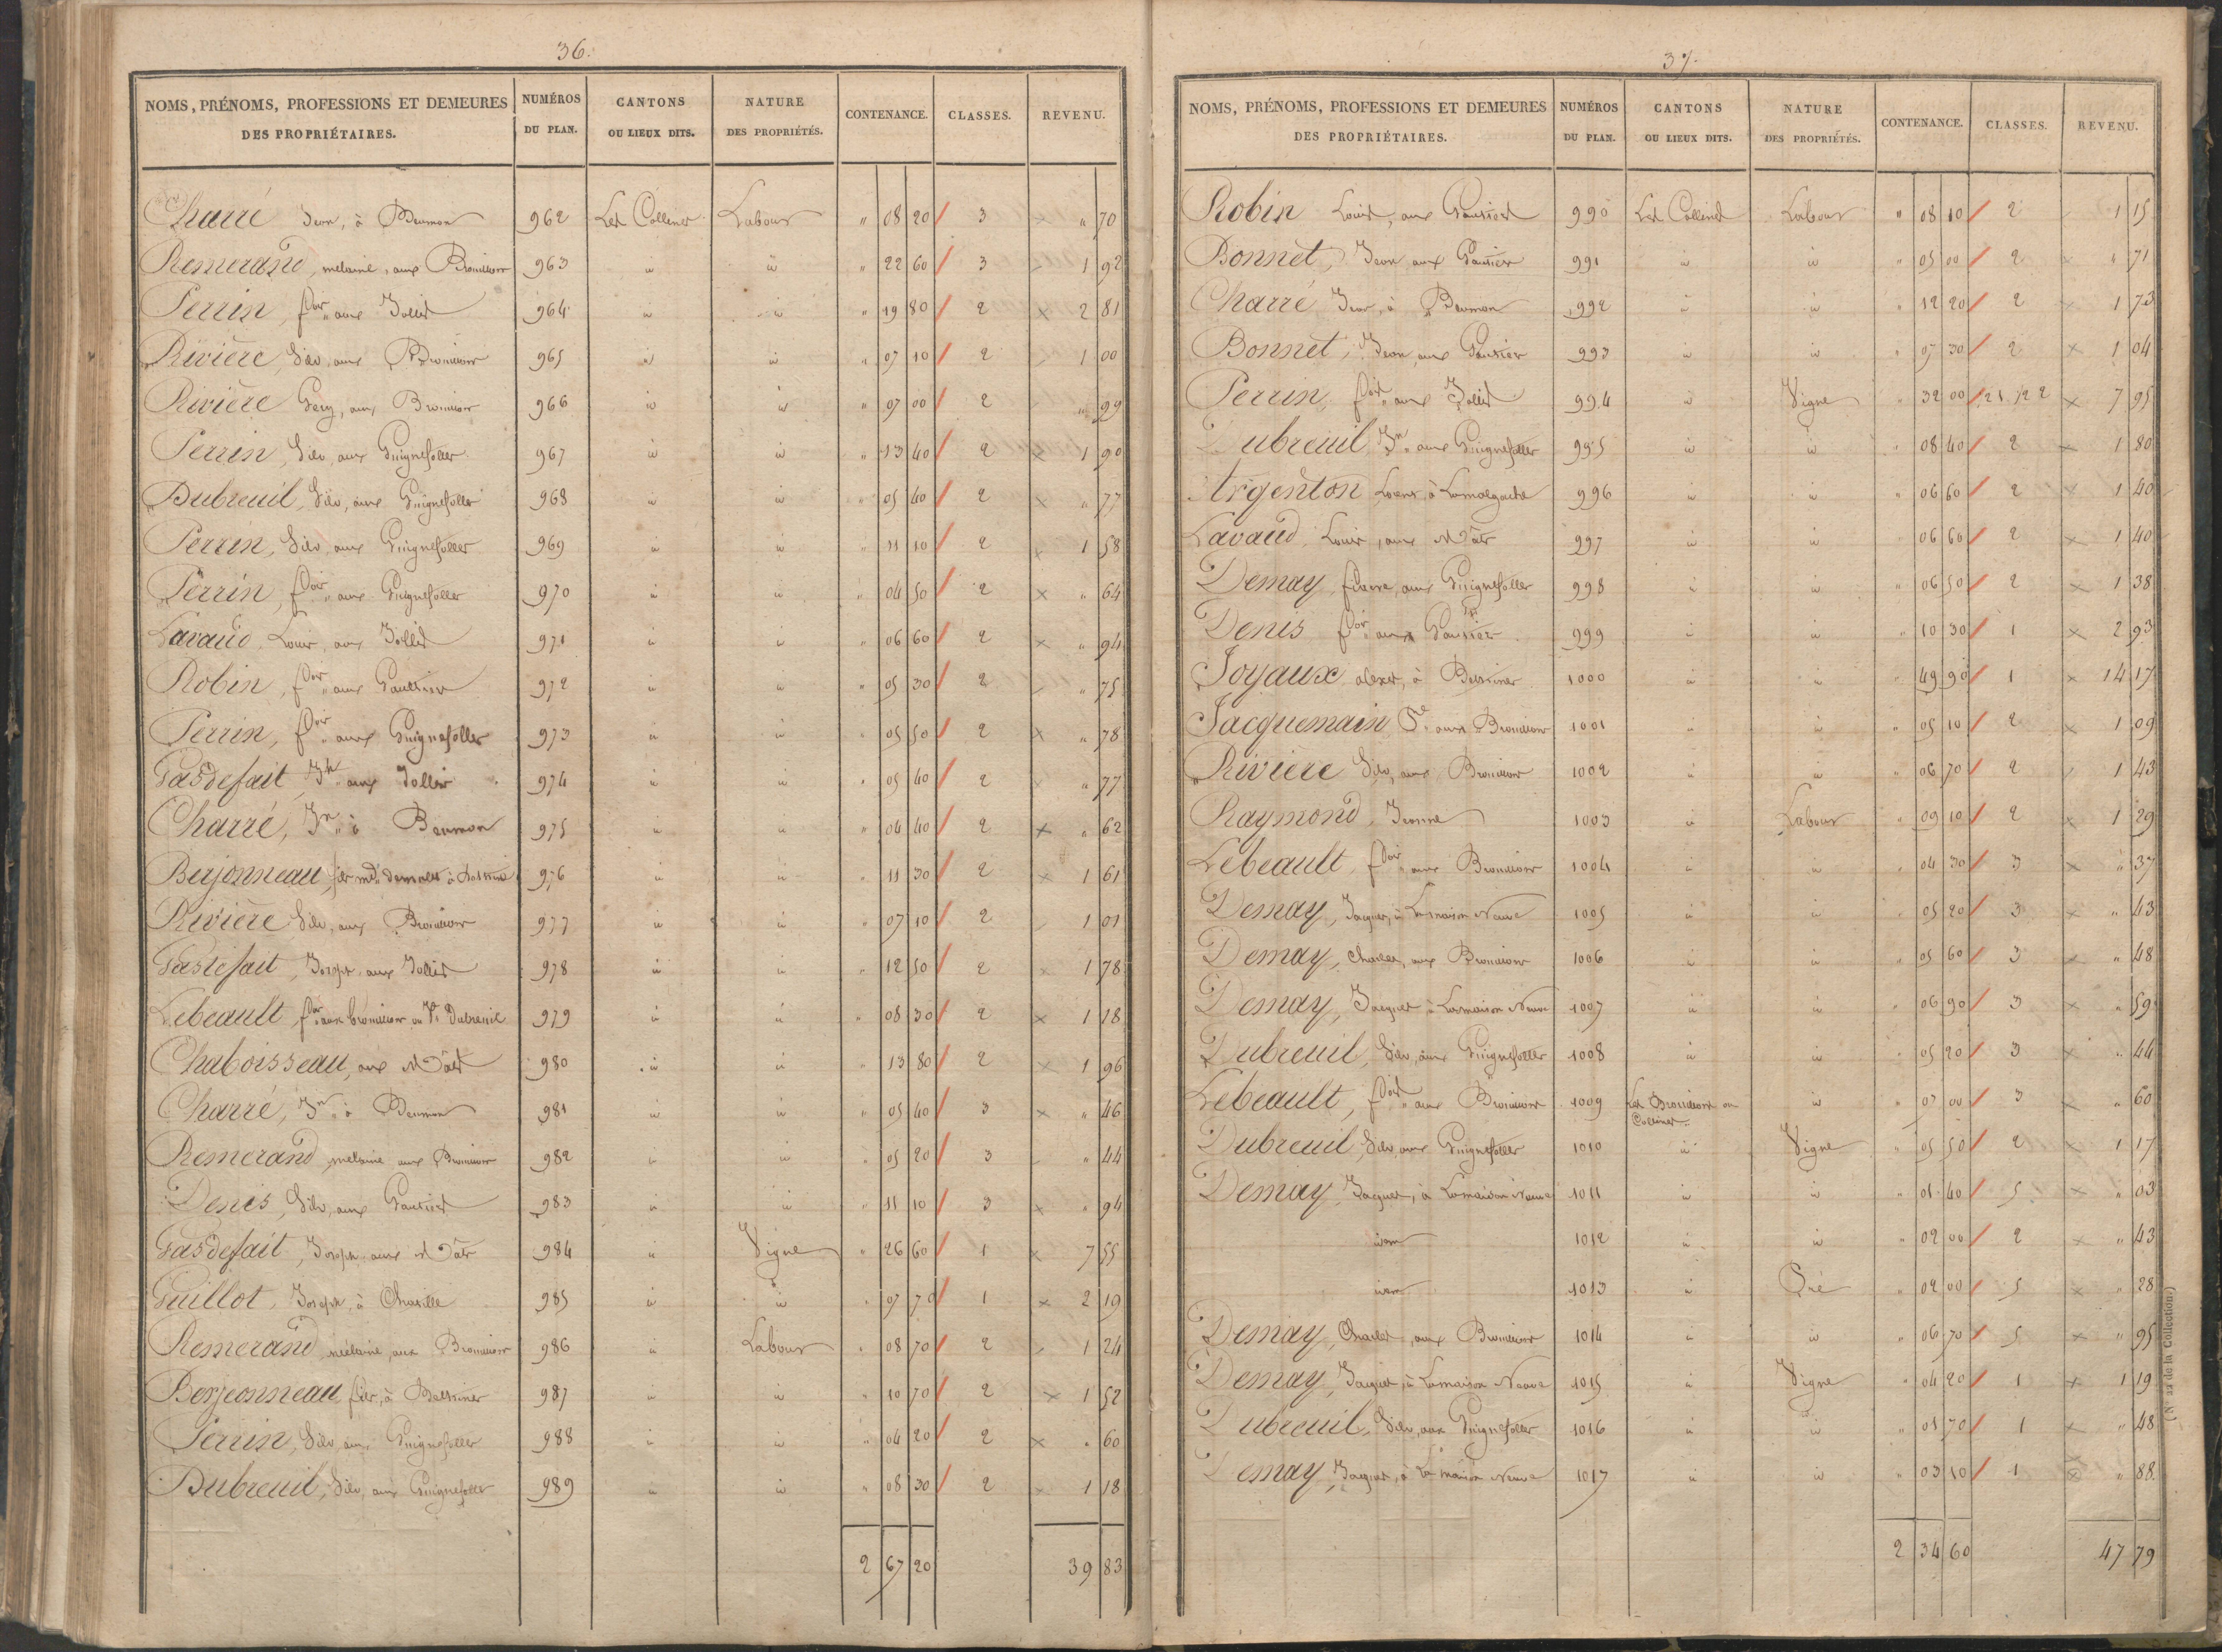 36.
NOMS, PRÉNOMS, PROFESSIONS ET DEMEURES DES PROPRIÉTAIRES. NUMÉROS DU PLAN. CANTONS OU LIEUX DITS. NATURE DES PROPRIÉTÉS. CONTENANCE. CLASSES. REVENU.
Charré Jean, à Beumon 962 Les Collines Labour " 08 20 3 " 70
Remerand, melaine, aux 963 id id " 22 60 3 1 92
Perrin, fois aux Jollis 964 id id " 19 80 2 2 81
Rivière, Silv, aux 965 id id " 07 10 2 1 00
Rivière aux 966 id id " 07 00 2 " 99
Perrin, Silv, aux Guignefolles 967 id id " 13 40 2 1 90
Dubreuil, Silv, aux Guignefolles 968 id id " 05 40 2 " 77
Perrin, Silv, aux Guignefolles 969 id id " 11 10 2 1 58
Perrin, fois aux Guignefolles 970 id id " 04 50 2 " 64
Lavaud, Louis, aux Jollis 971 id id " 06 60 2 " 94
Robin, fois aux Gaultiers 972 id id " 05 30 2 " 75
Perrin, fois aux Guignefolles 973 id id " 05 50 2 " 78
Pasdefait, Jh aux Jollis 974 id id " 05 40 2 " 77
Charré, Jn à Beumon 975 id id " 04 40 2 " 62
Berjonneau, 976 id id " 11 30 2 1 61
Rivière Silv, aux 977 id id " 07 10 2 1 01
Pasdefait, Joseph, aux Jollis 978 id id " 12 50 2 1 78
Lebeault, fois aux ou Ve Dubreuil 979 id id " 08 30 2 1 18
Chaboisseau, aux Mâts 980 id id " 13 80 2 1 96
Charré, Jn à Beumon 981 id id " 05 40 3 " 46
Remerand, melaine aux 982 id id " 05 20 3 " 44
Denis, Silv, aux Gautiers 983 id id " 11 10 3 " 94
Pasdefait, Joseph, aux Mâts 984 id Vigne " 26 60 1 7 55
Guillot, Joseph, à 985 id id " 07 70 1 2 19
Remerand, mélaine, aux 986 id Labour " 08 70 2 1 24
Berjeonneau, à 987 id id " 10 70 2 1 52
Perrin, Silv, aux Guignefolles 988 id id " 04 20 2 " 60
Dubreuil, Silv, aux Guignefolles 989 id id " 08 30 2 1 18
2 67 20 39 83
37.
NOMS, PRÉNOMS, PROFESSIONS ET DEMEURES DES PROPRIÉTAIRES. NUMÉROS DU PLAN. CANTONS OU LIEUX DITS. NATURE DES PROPRIÉTÉS. CONTENANCE. CLASSES. REVENU.
Robin Louis, aux Gautiers 990 Les Collines Labour " 08 10 2 1 15
Bonnet, Jean aux Gautiers 991 id id " 05 00 2 " 71
Charré, Jean, à Beumon 992 id id " 12 20 2 1 73
Bonnet, Jean, aux Gautiers 993 id id " 07 30 2 1 04
Perrin, fois aux Jollis 994 id Vigne " 32 00 7 95
Dubreuil, Jn aux Guignefolles 995 id id " 08 40 2 1 80
Argenton à 996 id id " 06 60 2 1 40
Lavaud, Louis, aux Mâts 997 id id " 06 60 2 1 40
Demay, aux Guignefolles 998 id id " 06 50 2 1 38
Denis fois aux Gautiers 999 id id " 10 30 1 2 93
Joyaux, à 1000 id id " 49 90 1 14 17
Jacquemain, aux 1001 id id " 05 10 2 1 09
Rivière Silv, aux 1002 id id " 06 70 2 1 43
Raymond, 1003 id Labour " 09 10 2 1 29
Lebeault, fois aux 1004 id id " 04 30 3 " 37
Demay, Jacques, à La maison Neuve 1005 id id " 05 20 3 " 43
Demay, Charles, aux 1006 id id " 05 60 3 " 48
Demay, Jacques à La maison Neuve 1007 id id " 06 90 3 " 59
Dubreuil, Silv, aux Guignefolles 1008 id id " 05 20 3 " 44
Lebeault, fois aux 1009 Les ou Collines id " 07 00 3 " 60
Dubreuil, Silv, aux Guignefolles 1010 id Vigne " 05 50 2 1 17
Demay, Jacques, à La maison Neuve 1011 id id " 01 40 5 " 03
idem 1012 id id " 02 00 2 " 43
idem 1013 id Pré " 02 00 5 " 28
Demay, Charles, aux 1014 id id " 06 70 5 " 95
Demay, Jacques, à La maison Neuve 1015 id Vigne " 04 20 1 1 19
Dubreuil, Silv, aux Guignefolles 1016 id id " 01 70 1 " 48
Demay, Jacques, à La maison Neuve 1017 id id " 03 10 1 " 88
2 34 60 47 79
(N° 22 de la Collection.)